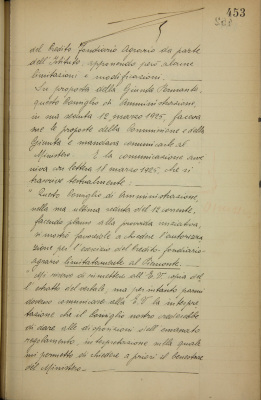 453
del Credito Fondiario Agrario da parte
dell'Istituto, apponendo però alcune
limitazioni e modificazioni.
Su proposta della Giunta Permanente,
questo Consiglio di Amministrazione,
in una seduta 12 marzo 1925, faceva
sue le proposte della Commissione e della
Giunta e mandava comunicarle al
Ministero. E la comunicazione
con lettera 21 marzo 1925, che si
trascrive testualmente:
" Questo Consiglio di Amministrazione,
nella sua ultima seduta del 12 corrente,
facendo plauso alla provvida iniziativa,
si mostrò favorevole a chiedere l'autorizza-
zione per l'esercizio del Credito fondiario-
agrario limitatamente al Piemonte.
di rimettere all'E.V. copia del-
l'estratto del verbale, ma pertanto parmi
doveroso comunicare alla E.V. la interpre-
tazione che il Consiglio nostro crederebbe
di dare alle disposizioni dell'emanato
regolamento, interpretazione sulla quale
mi permetto di chiedere a priori il benestare
del Ministero.